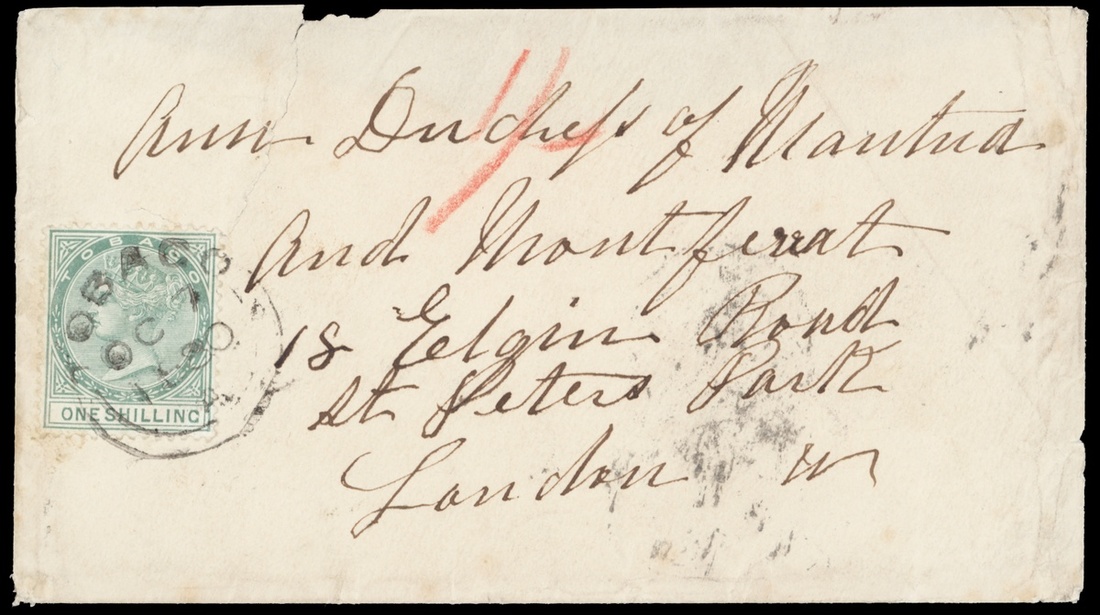 Ann Duchess of Mantua
and Montferrat
18 Elgin Road
St Peters Park
London W
1/-
TOBAGO
ONE SHILLING
TOBAGO
OC 7
80